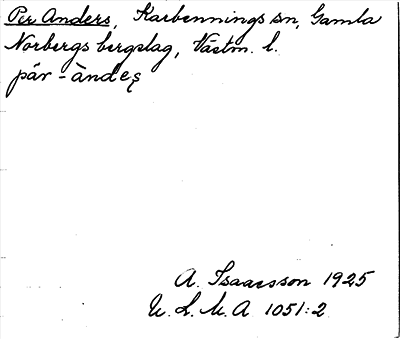 Per Anders, Karbennings sn, Gamla
Norbergs bergslag, Västm. l.
pär-àndęs
A. Isaacsson 1925
U.L.M.A 1051:2